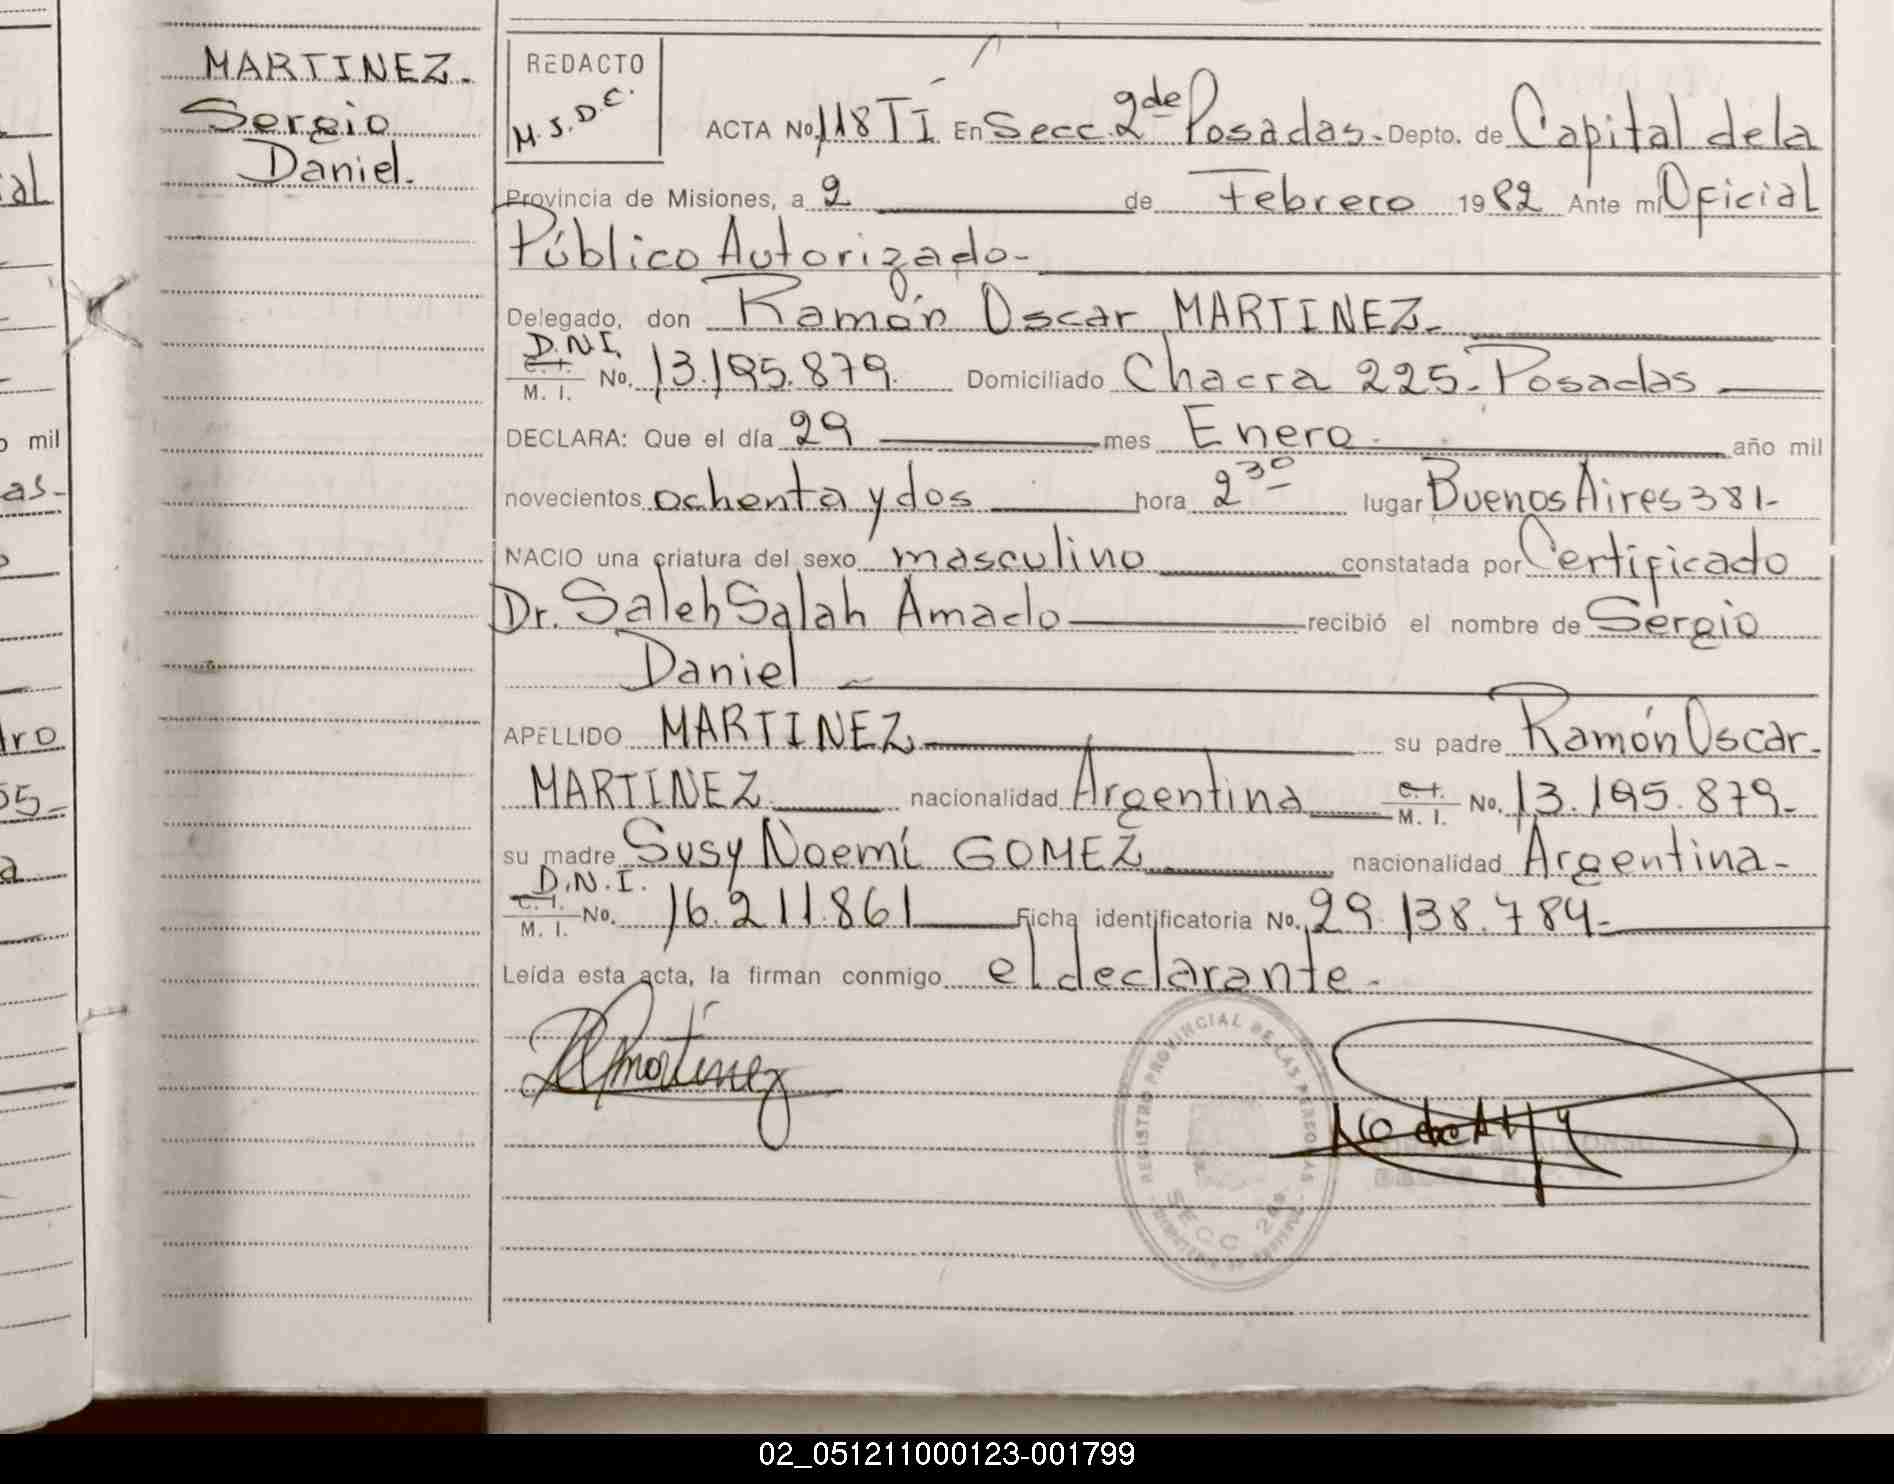 MARTINEZ.
Sergio
Daniel.
REDACTO
M.S.D.C.
ACTA No. 118 TI En Secc. 2da Posadas.- Depto. de Capital de la
Provincia de Misiones, a 2 de Febrero 1982 Ante mi Oficial
Público Autorizado-
Delegado, don Ramón Oscar MARTINEZ.
D.N.I.
C. I.
M. I. No. 13.195.879. Domiciliado Chacra 225.- Posadas
DECLARA: Que el día 29 mes Enero.- año mil
novecientos ochenta y dos hora 2 30 lugar Buenos Aires 381-
NACIO una criatura del sexo masculino constatada por Certificado
Dr. Saleh Salah Amado recibió el nombre de Sergio
Daniel
APELLIDO MARTINEZ su padre Ramón Oscar.
MARTINEZ nacionalidad Argentina C. I.
M. I. No. 13.195.879-
su madre Susy Noemí GOMEZ nacionalidad Argentina-
D.N.I.
C. I.
M. I. No. 16.211.861 Ficha identificatoria No. 29.138.784-
Leída esta acta, la firman conmigo el declarante.-
Martinez
REGISTRO PROVINCIAL DE LAS PERSONAS
SECC 2da.
al
o mil
as-
tro
55-
a
02_051211000123-001799